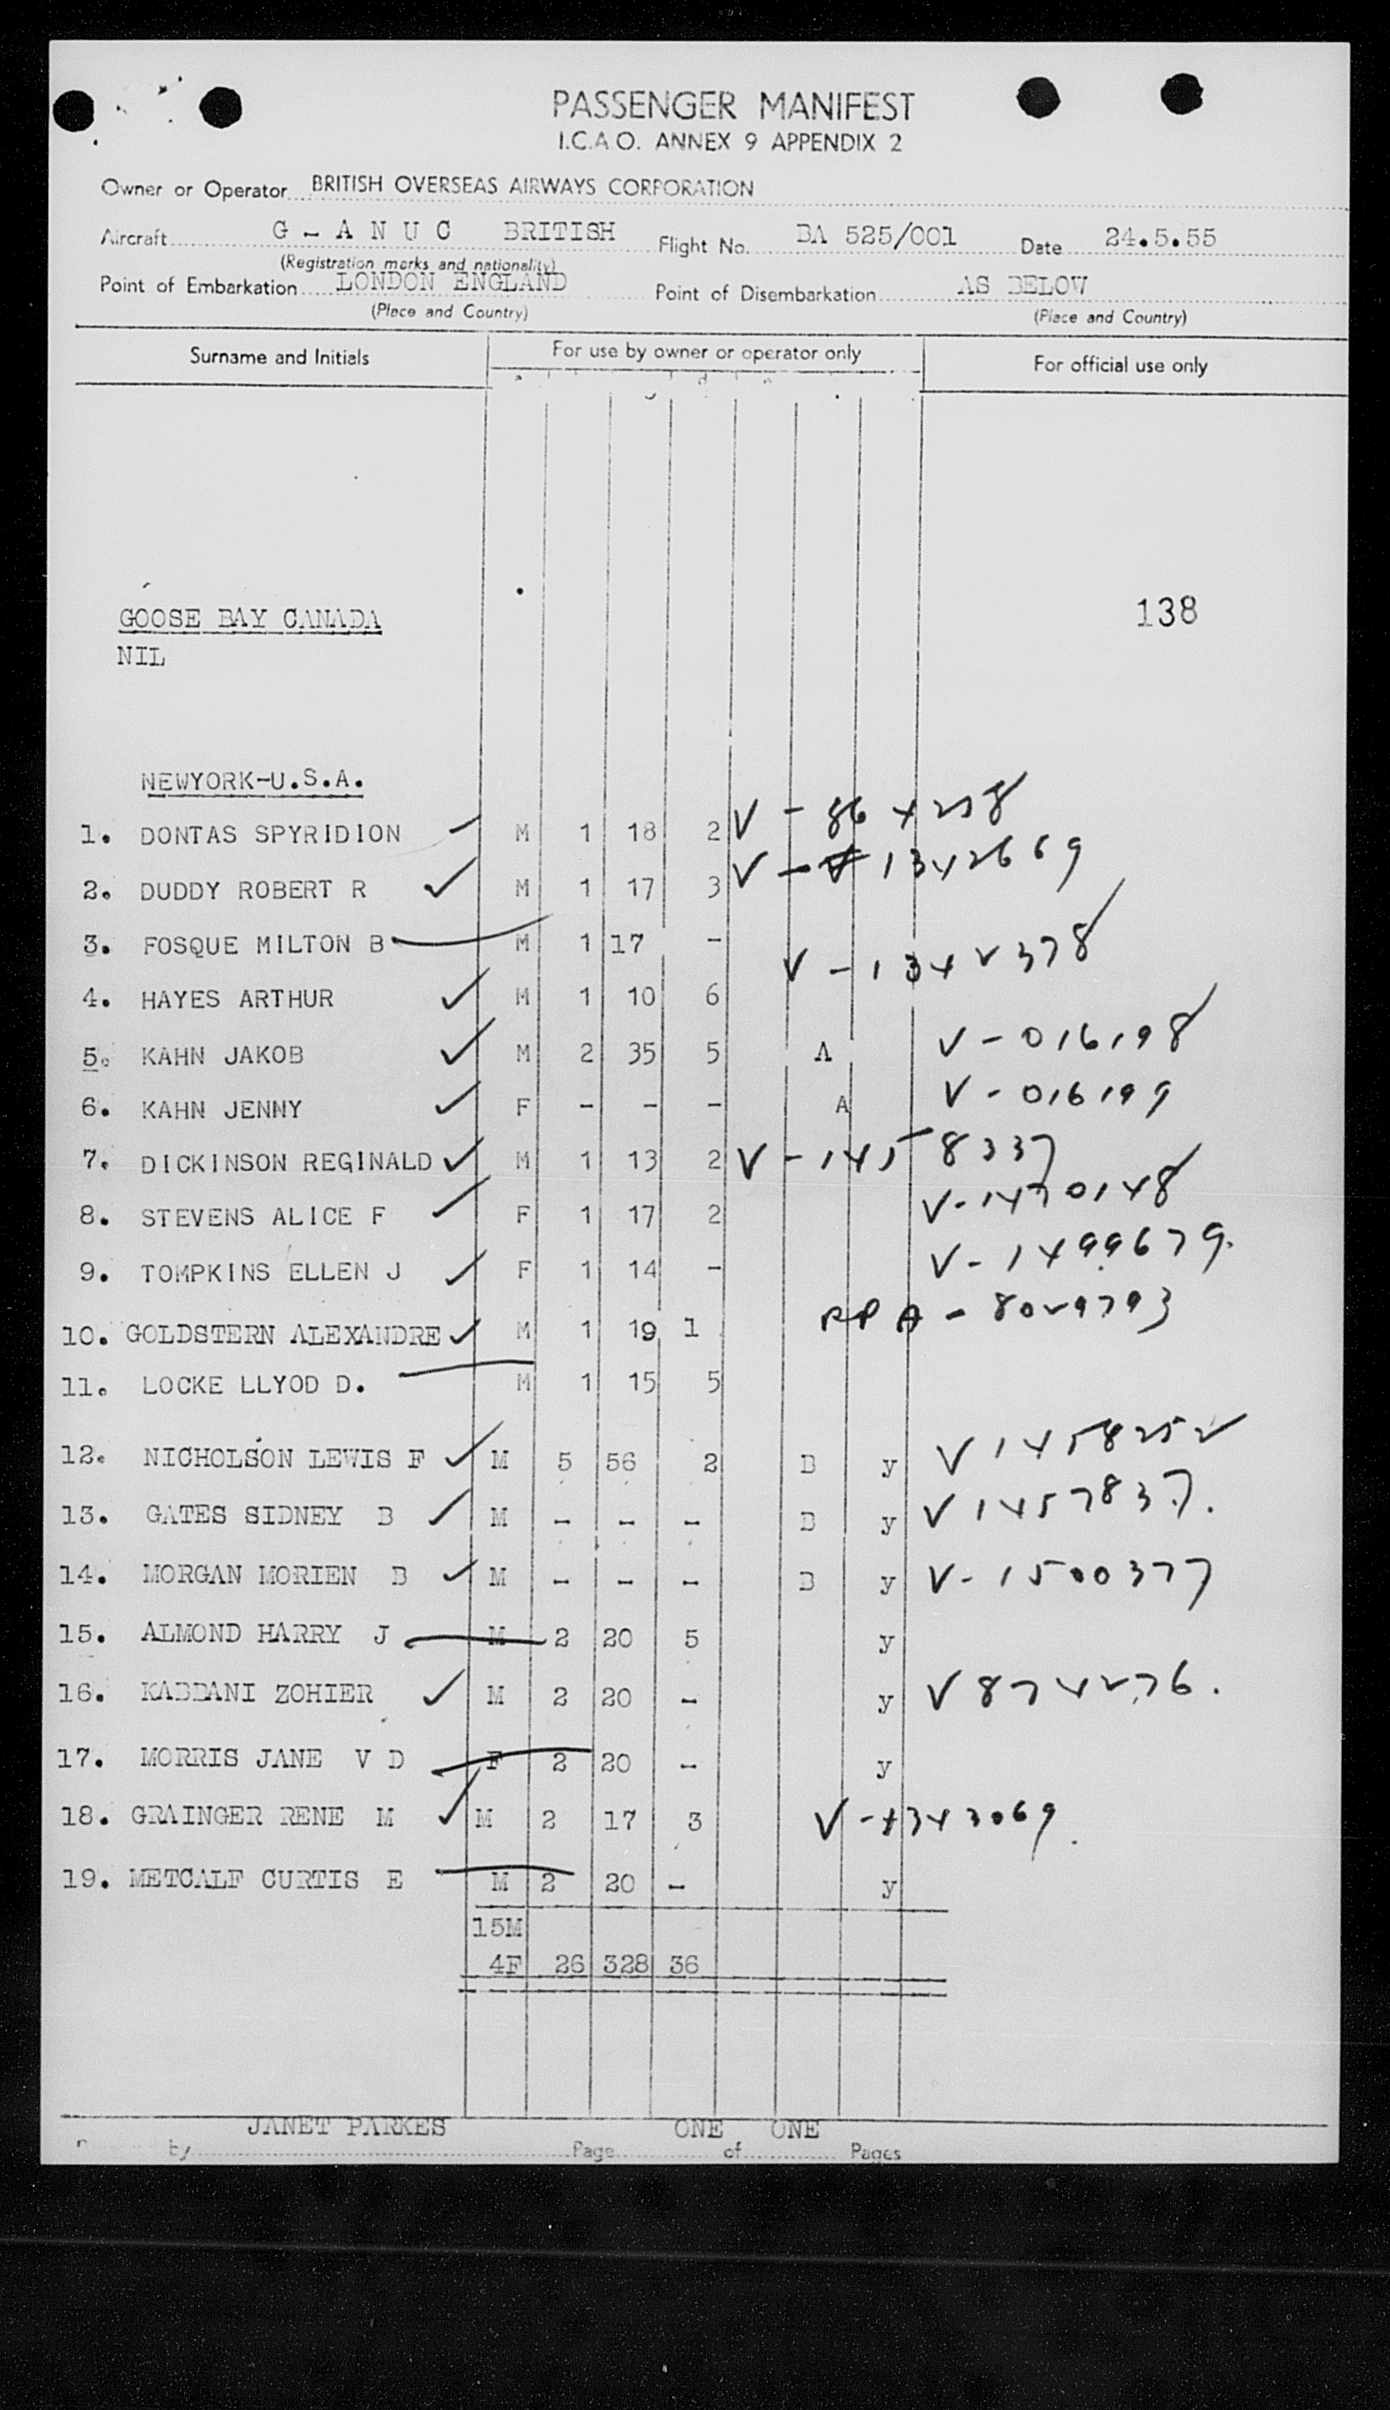 PASSENGER MANIFEST
I.C.A.O. ANNEX 9 APPENDIX 2
Owner or Operator BRITISH OVERSEAS AIRWAYS CORPORATION
Aircraft G - A N U C BRITISH Flight No. BA 525/001 Date 24.5.55
(Registration marks and nationality)
Point of Embarkation LONDON ENGLAND Point of Disembarkation AS BELOW
(Place and Country) (Place and Country)
Surname and Initials For use by owner or operator only For official use only
GOOSE BAY CANADA 138
NIL
NEWYORK-U.S.A.
1. DONTAS SPYRIDION M 1 18 2 V - 864258
2. DUDDY ROBERT R M 1 17 3 V - 1342669
3. FOSQUE MILTON B M 1 17 -
4. HAYES ARTHUR M 1 10 6 V - 1342378
5. KAHN JAKOB M 2 35 5 A V - 016198
6. KAHN JENNY F - - - A V - 016199
7. DICKINSON REGINALD M 1 13 2 V - 1458337
8. STEVENS ALICE F F 1 17 2 V - 1470148
9. TOMPKINS ELLEN J F 1 14 - V - 1499679.
10. GOLDSTERN ALEXANDRE M 1 19 1 RPA - 8029793
11. LOCKE LLYOD D. M 1 15 5
12. NICHOLSON LEWIS F M 5 56 2 B y V 1458252
13. GATES SIDNEY B M - - - B y V 1457837.
14. MORGAN MORIEN B M - - - B y V - 1500377
15. ALMOND HARRY J M 2 20 5 y
16. KABBANI ZOHIER M 2 20 - y V 874276.
17. MORRIS JANE V D F 2 20 - y
18. GRAINGER RENE M M 2 17 3 V - 1343069
19. METCALF CURTIS E M 2 20 - y
15M
4F 26 328 36
JANET PARKES ONE ONE
by Page of Pages